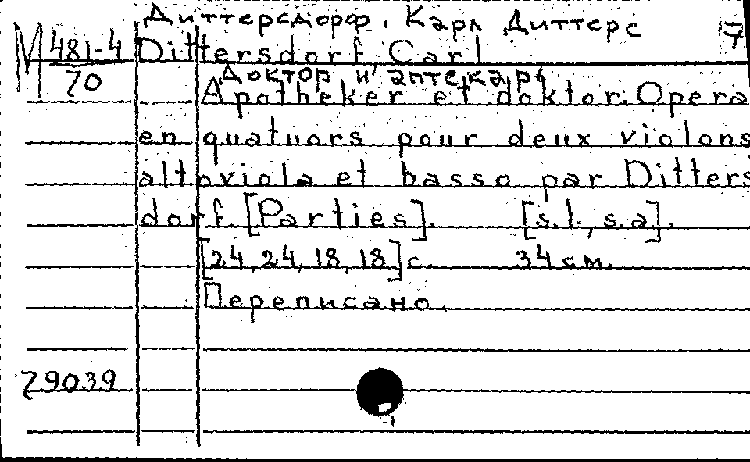 Диттерсдорф, Карл Диттерс 7
М 481-4 Dittersdorf, Carl
70 Доктор и аптекарь
Apotheker et doktor. Opera
en quatuors pour deux violons
altoviola et basso par Ditters
dorf. [Parties]. [s.l., s.a].
[24, 24, 18, 18] с. 34 см.
Переписано.
29039